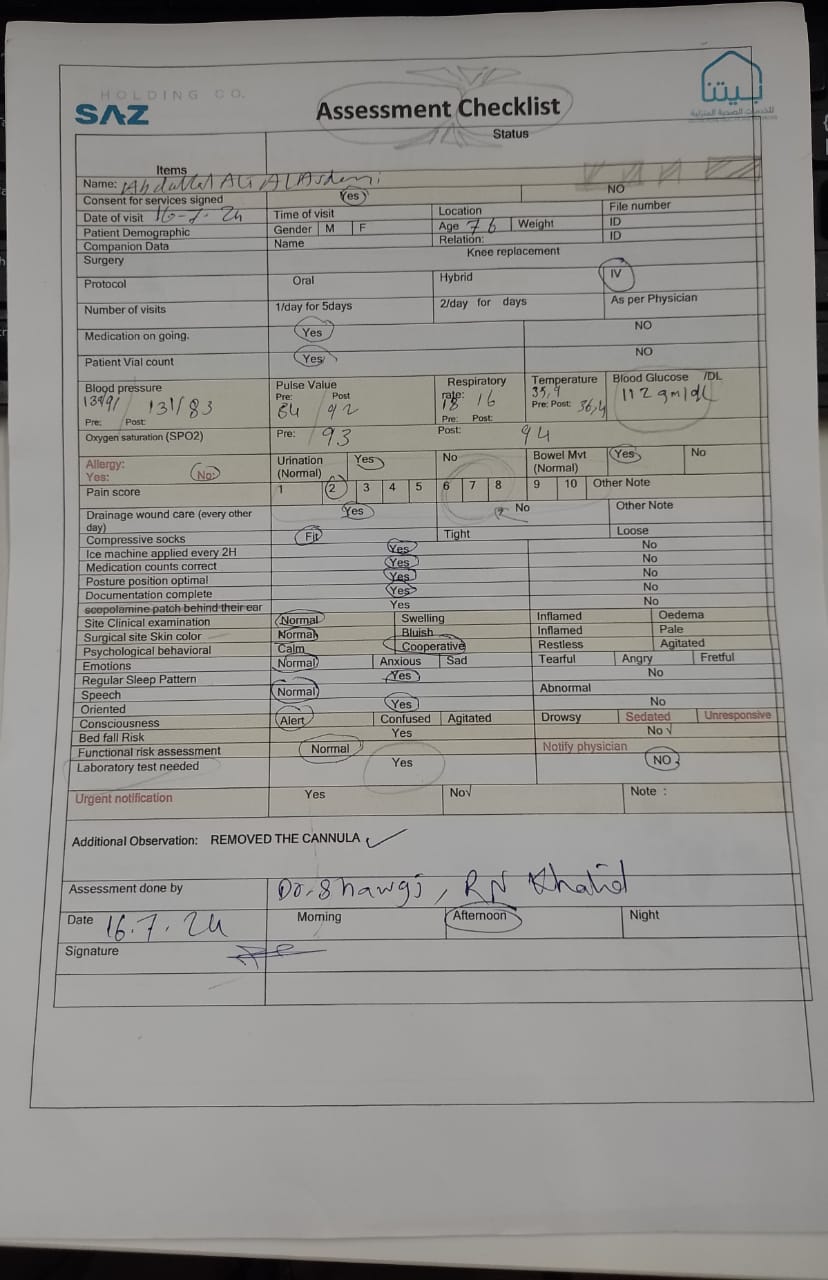 HOLDING CO.
SAZ
Assessment Checklist
بيتنا
للخدمات الصحية المنزلية
Status
Items
Name: Abdullah Ali
Consent for services signed Yes NO
Date of visit 16-7-24 Time of visit Location File number
Patient Demographic Gender M F Age 76 Weight ID
Companion Data Name Relation: ID
Surgery Knee replacement
Protocol Oral Hybrid IV
Number of visits 1/day for 5days 2/day for days As per Physician
Medication on going. Yes NO
Patient Vial count Yes NO
Blood pressure Pulse Value Respiratory rate: Temperature Blood Glucose /DL
131/83 84 92 18 16 35,9 36,4 112 gm/dL
Pre: Post: Pre: Post Pre: Post: Pre: Post:
Oxygen saturation (SPO2) Pre: 93 Post: 94
Allergy: Yes: No: Urination (Normal) Yes No Bowel Mvt (Normal) Yes No
Pain score 1 2 3 4 5 6 7 8 9 10 Other Note
Drainage wound care (every other day) Yes No Other Note
Compressive socks Fit Tight Loose
Ice machine applied every 2H Yes No
Medication counts correct Yes No
Posture position optimal Yes No
Documentation complete Yes No
scopolamine patch behind their ear Yes No
Site Clinical examination Normal Swelling Inflamed Oedema
Surgical site Skin color Normal Bluish Inflamed Pale
Psychological behavioral Calm Cooperative Restless Agitated
Emotions Normal Anxious Sad Tearful Angry Fretful
Regular Sleep Pattern Yes No
Speech Normal Abnormal
Oriented Yes No
Consciousness Alert Confused Agitated Drowsy Sedated Unresponsive
Bed fall Risk Yes No √
Functional risk assessment Normal Notify physician
Laboratory test needed Yes NO
Urgent notification Yes No√ Note :
Additional Observation: REMOVED THE CANNULA ✓
Assessment done by Dr. Shawgi, RN Khalid
Date 16.7.24 Morning Afternoon Night
Signature